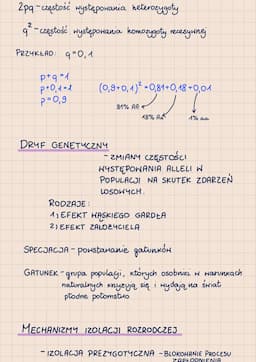 2pq - częstość występowania heterozygoty
q² - częstość występowania homozygoty recesywnej
PRZYKŁAD: q=0,1
p+q=1
p+0,1=1
p=0,9
(0,9+0,1)²=0,81+0,18+0,01
81% AA
18% Aa
1% aa
DRYF GENETYCZNY
- ZMIANY CZĘSTOŚCI
WYSTĘPOWANIA ALLELI W
POPULACJI NA SKUTEK ZDARZEŃ
LOSOWYCH.
RODZAJE:
1) EFEKT WĄSKIEGO GARDŁA
2) EFEKT ZAŁOŻYCIELA
SPECJACJA - powstawanie gatunków
GATUNEK - grupa populacji, których osobniki w warunkach
naturalnych krzyżują się i wydają na świat
płodne potomstwo
MECHANIZMY IZOLACJI ROZRODCZEJ
- IZOLACJA PREZYGOTYCZNA - BLOKOWANIE PROCESU
ZAPŁODNIENIA